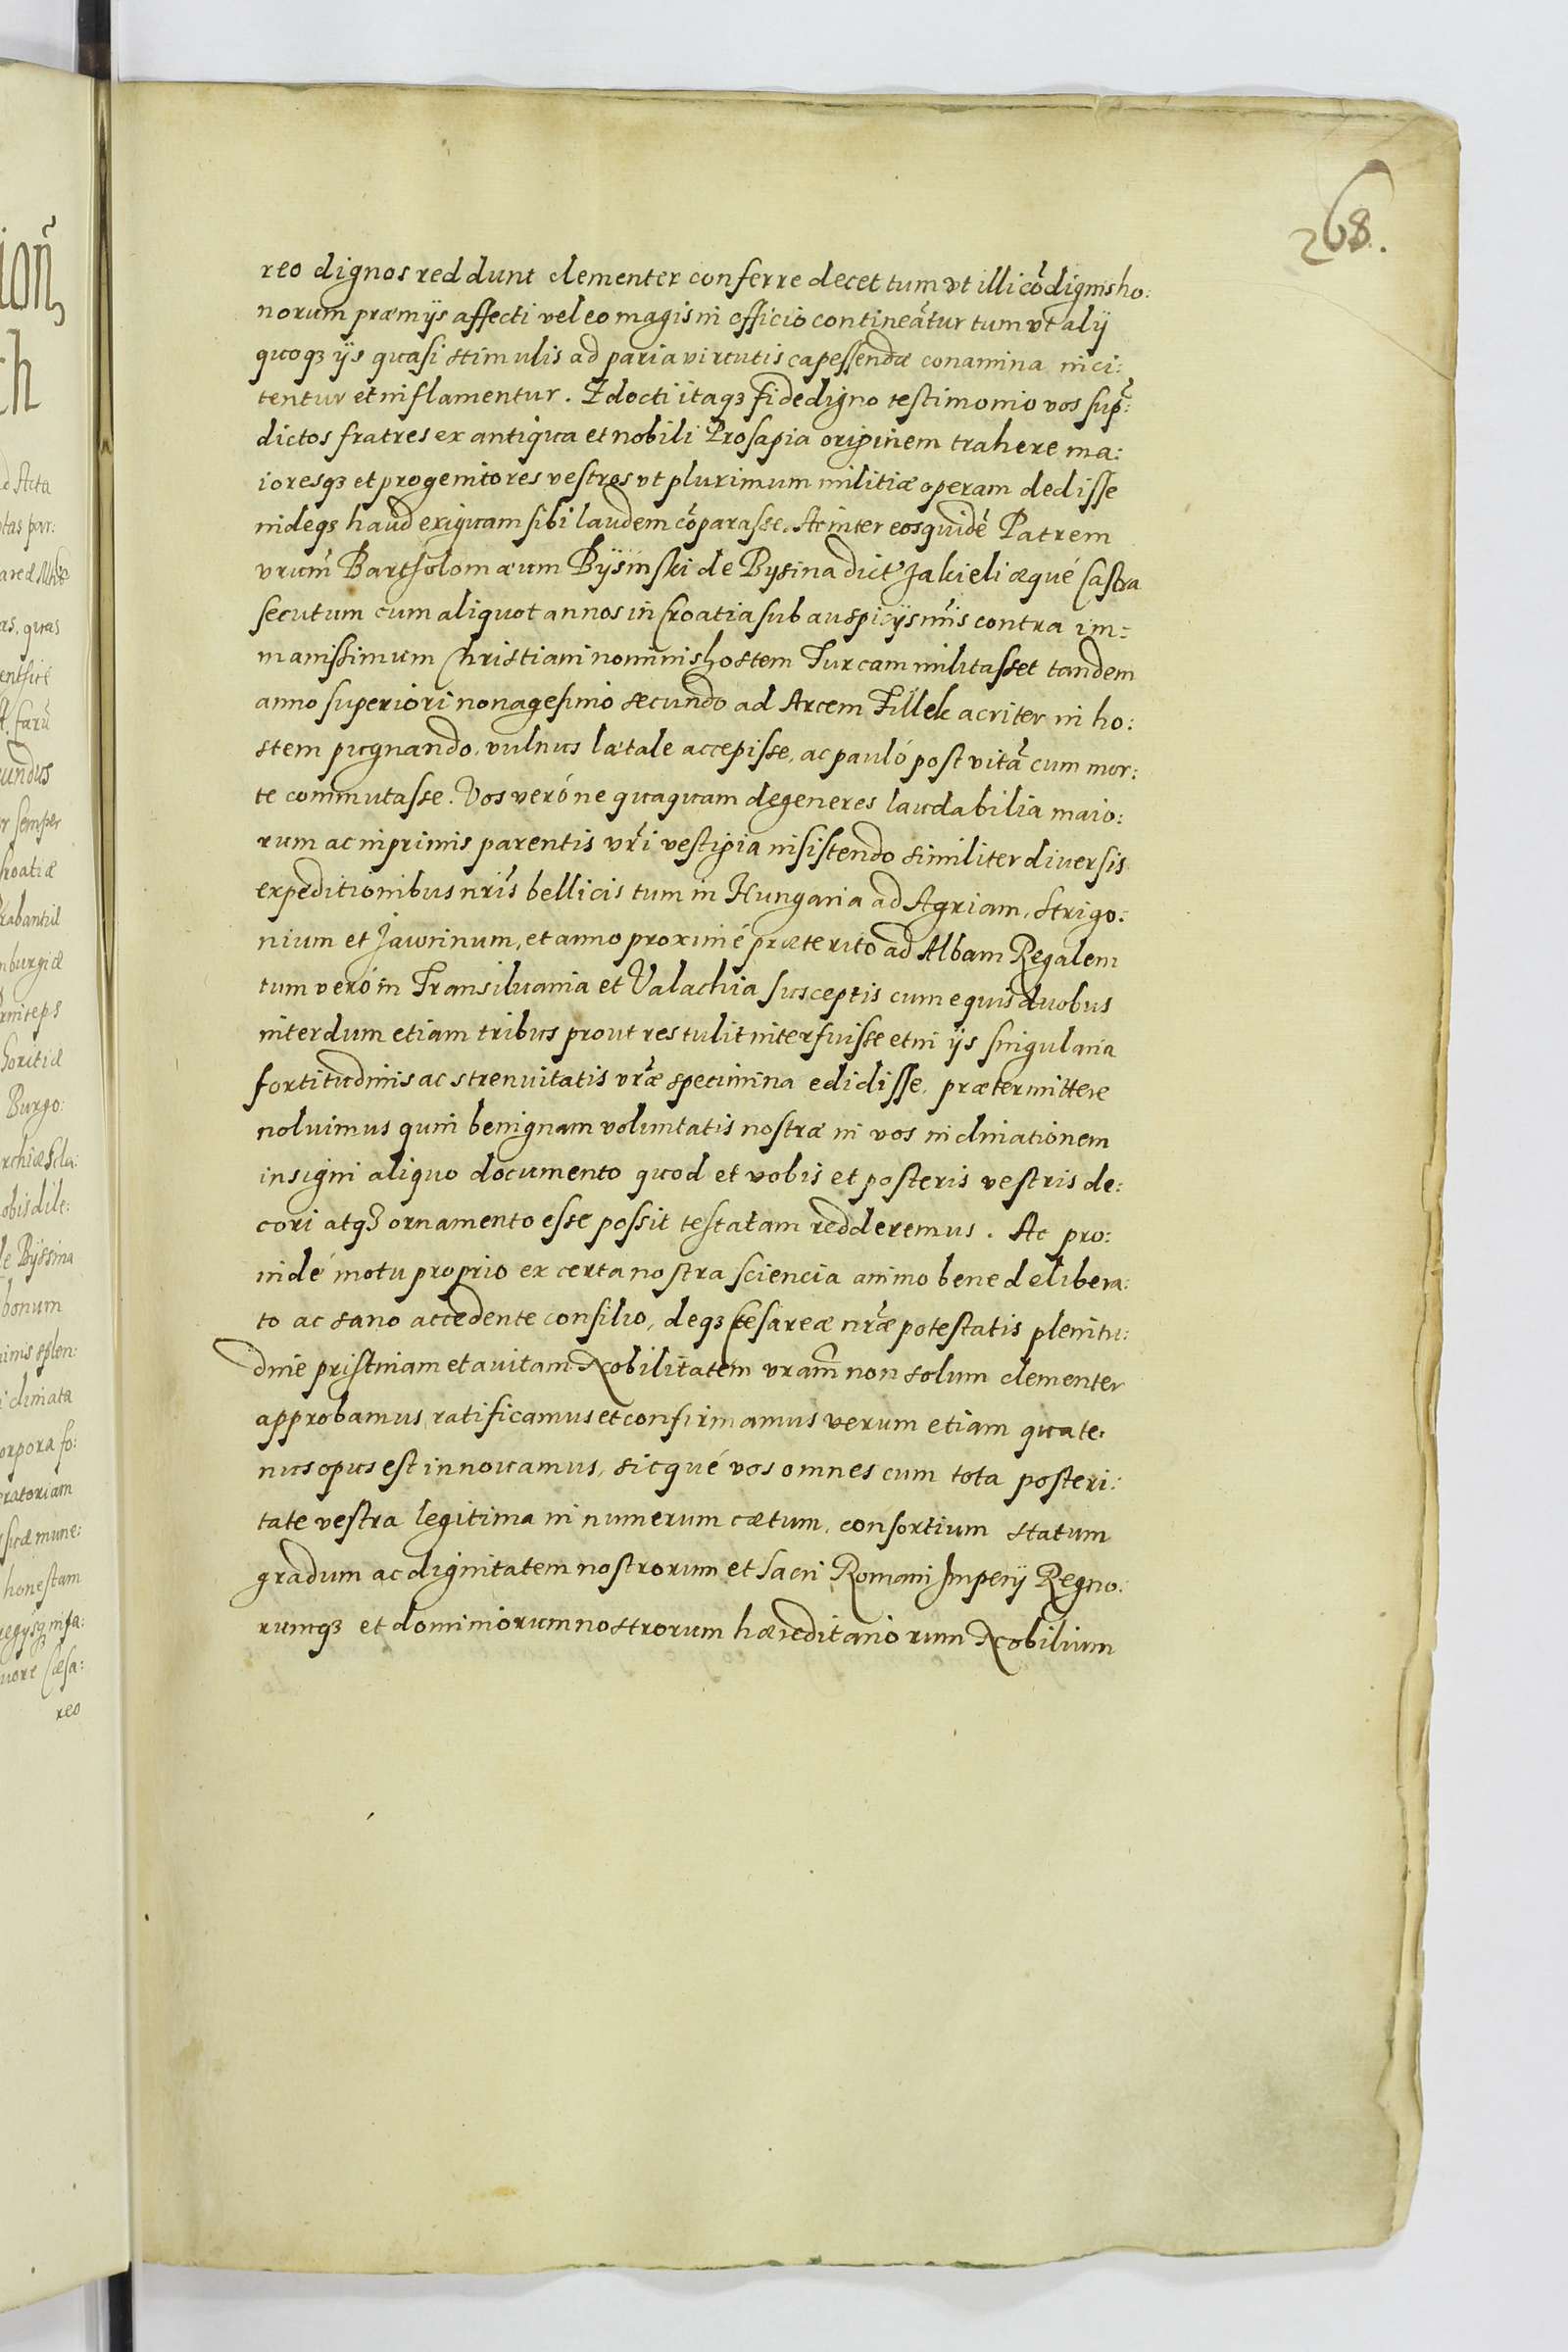 268.
reo dignos reddunt clementer conferre decet tum vt illi cõdignis ho:
norum præmijs affecti vel eo magis in officio contineãtur tum vt alij
quoqȝ ijs quasi stimulis ad paria virtutis capessendæ conamina inci:
tentur et inflamentur. Edocti itaqȝ fide digno testimonio vos sup̃:
dictos fratres ex antiqua et nobili Prosapia originem trahere ma:
ioresqȝ et progenitores vestros vt plurimum militiæ operam dedisse
indeqȝ haud exiguam sibi laudem cõparasse. Ac inter eos quidẽ Patrem
vrum̃ Bartholomæum Bÿsinski de Bysina dict' Jakieli æqué Castra
secutum cum aliquot annos in Croatia sub auspicijs nris̃ contra im:
manissimum Christiani nominis hostem Turcam militasset tandem
anno superiori nonagesimo secundo ad Arcem Fillek acriter in ho:
stem pugnando, vulnus lætale accepisse, ac pauló post vitã cum mor:
te commutasse. Vos veró ne quaquam degeneres laudabilia maio:
rum ac inprimis parentis vrĩ vestigia insistendo similiter diuersis
expeditionibus nris̃ bellicis tum in Hungaria ad Agriam, Strigo:
nium et Jaurinum, et anno proximé præterito ad Albam Regalem
tum veró in Transiluania et Valachia susceptis cum equis duobus
interdum etiam tribus prout res tulit interfuisse et in ijs singularia
fortitudinis ac strenuitatis vræ̃ specimina edidisse, prætermittere
noluimus quin benignam voluntatis nostræ in vos inclinationem
insigni aliquo documento quod et vobis et posteris vestris de:
cori atqȝ ornamento esse possit testatam redderemus. Ac pro:
indé motu proprio ex certa nostra sciencia animo bene delibera:
to ac sano accedente consilio, deqȝ Cesareæ nræ̃ potestatis plenitu:
dine pristinam et auitam Nobilitatem vram̃ non solum clementer
approbamus, ratificamus et confirmamus verum etiam quate:
nus opus est innouamus, sicqué vos omnes cum tota posteri:
tate vestra legitima in numerum cætum, consortium statum
gradum ac dignitatem nostrorum et Sacri Romani Imperij Regno:
rumqȝ et dominiorum nostrorum hæreditariorum Nobilium